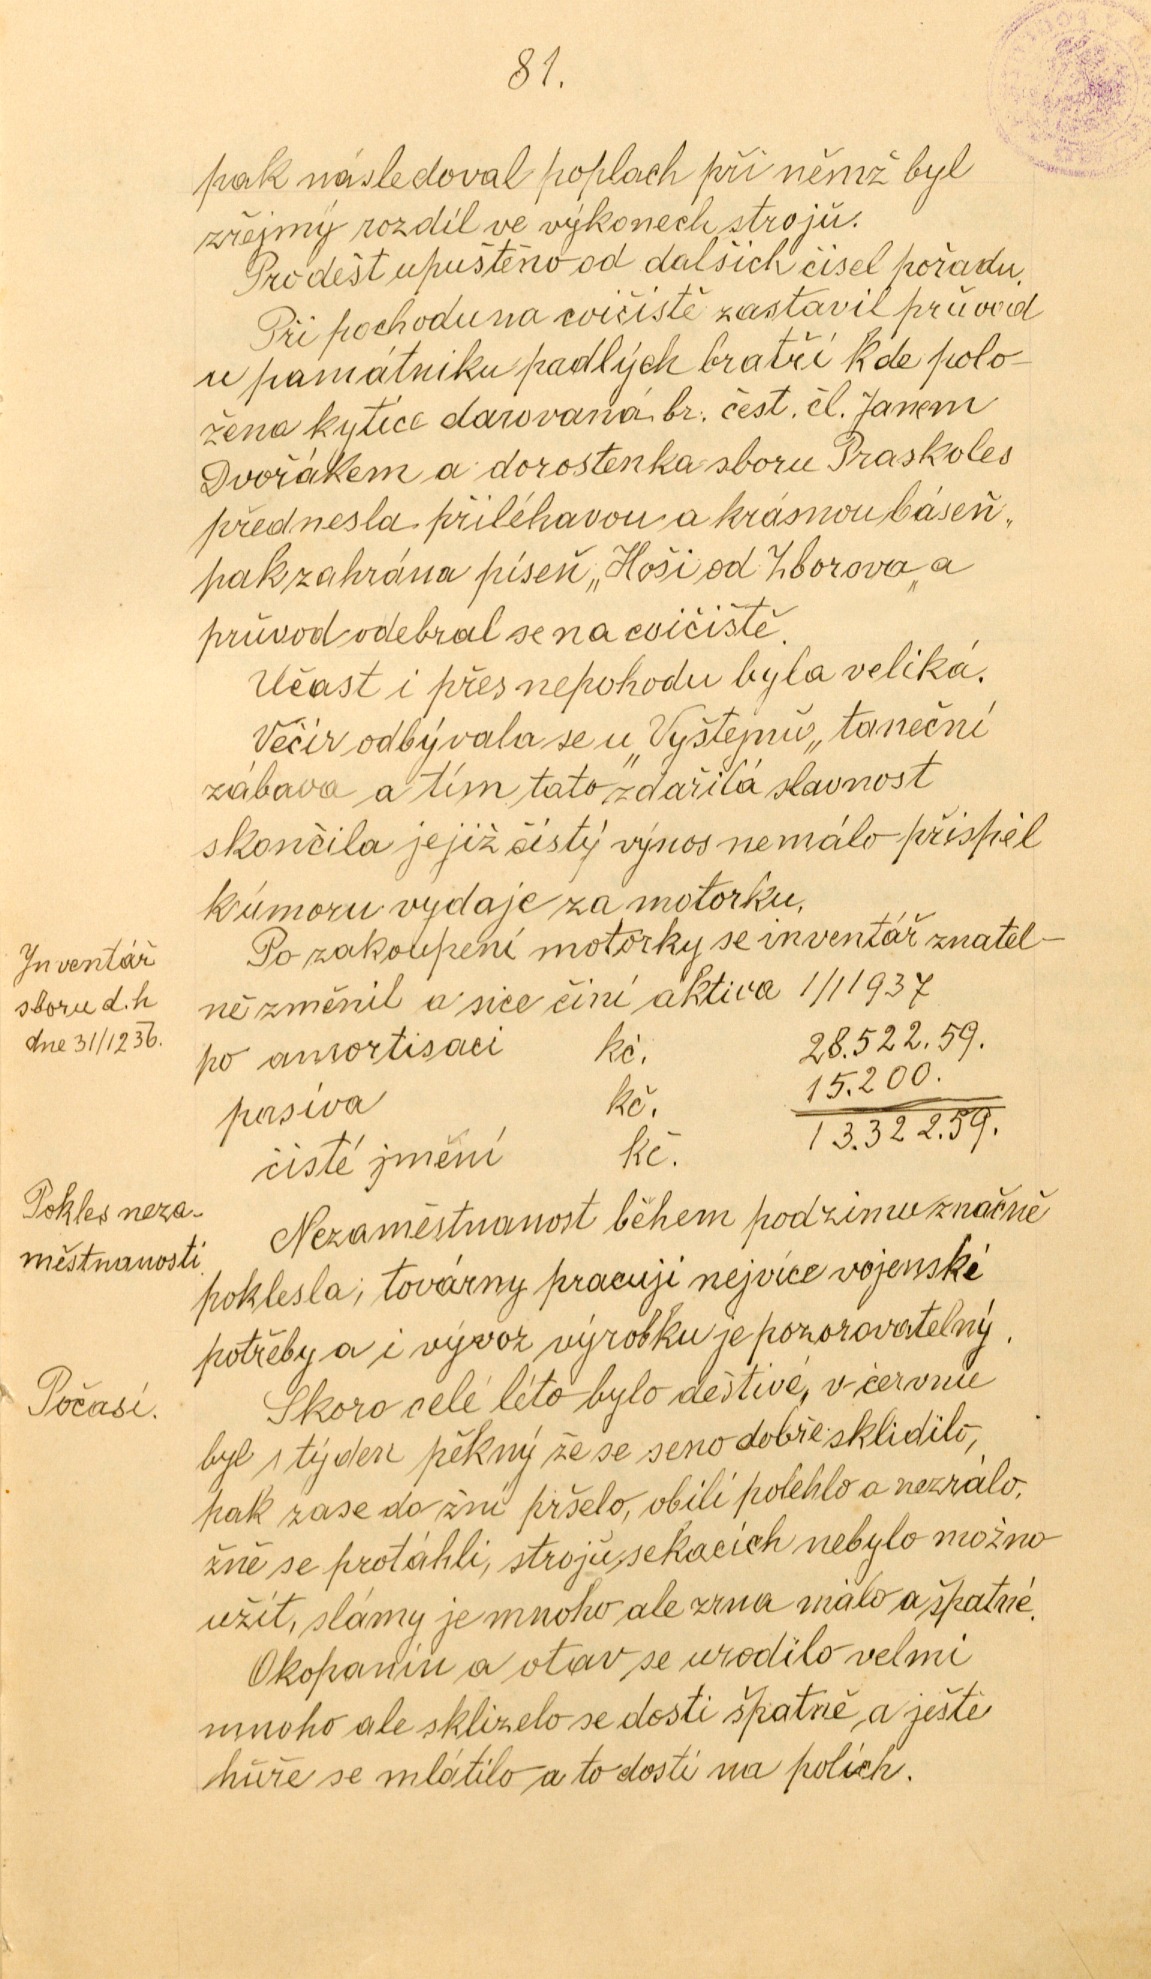 81.
pak následoval poplach při němž byl
zřejmý rozdíl ve výkonech strojů.
Pro déšt upuštěno od dalších čísel pořadu.
Při pochodu na cvičistě zastavil průvod
u památniku padlých bratří kde polo-
žena kytice darovaná br. čest. čl. Janem
Dvořákem a dorostenka sboru Praskoles
přednesla přiléhavou a krásnou báseň,
pak zahrána píseň „Hoši od Zborova„ a
průvod odebral se na cvičiště.
Učast i přes nepohodu byla veliká.
Večír odbývala se u „Vyštejnů„ taneční
zábava a tím tato zdařilá slavnost
skončila jejíž čistý výnos nemálo přispěl
k úmoru vydaje za motorku.
Inventář
sboru d.h
dne 31/12 36.
Po zakoupení motorky se inventář znatel-
ně změnil a sice činí aktiva 1/1 1937
po amortisaci kč. 28.522.59.
pasíva kč. 15.200.
čisté jmění kč. 13.322.59.
Pokles neza-
městnanosti
Nezaměstnanost během podzimu značně
poklesla, továrny pracují nejvíce vojenské
potřeby a i vývoz výrobku je pozorovatelný.
Počasí.
Skoro celé léto bylo deštivé, v červnu
byl 1 týden pěkný že se seno dobře sklidilo,
pak zase do žní pršelo, obilí polehlo a nezrálo,
žně se protáhli, strojů sekacích nebylo možno
užít, slámy je mnoho ale zrna málo a špatné.
Okopanin a otav se urodilo velmi
mnoho ale sklizelo se dosti špatně, a ještě
hůře se mlátilo a to dosti na polích.